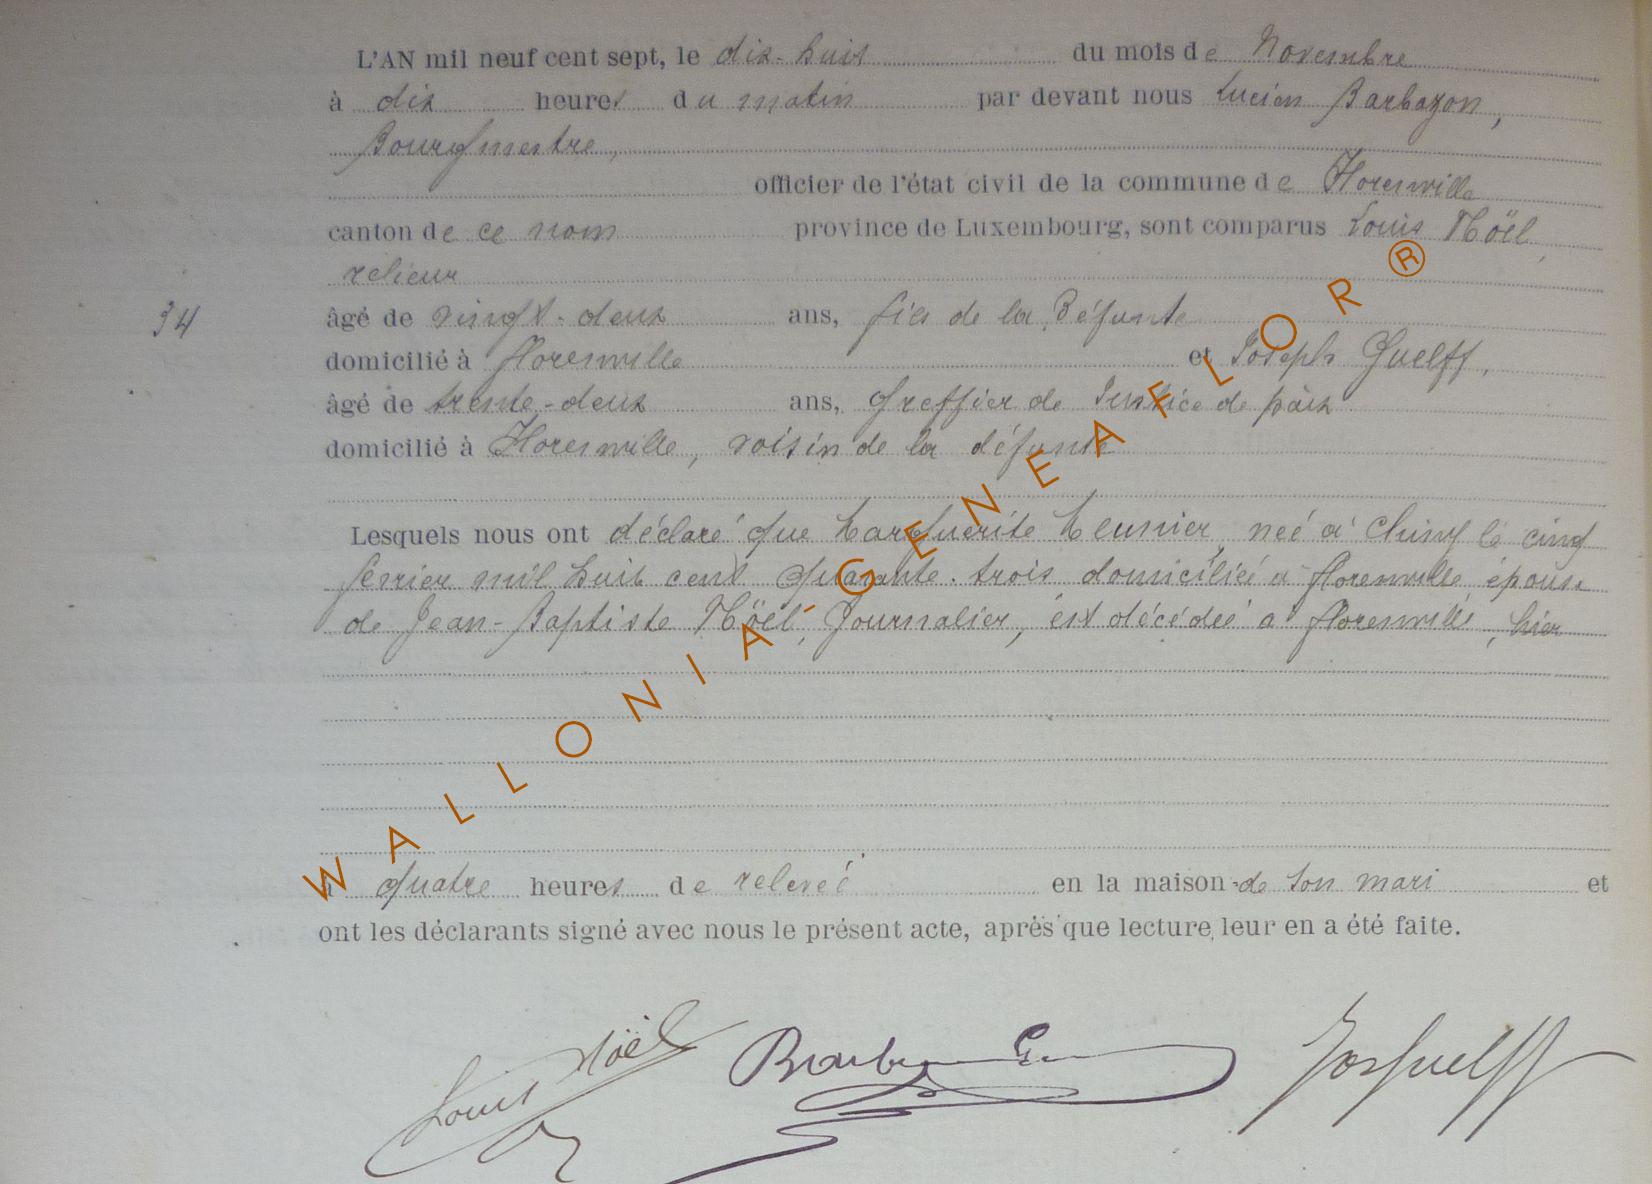 L'AN mil neuf cent sept, le dix-huit du mois de Novembre
à dix heures du matin par devant nous Lucien Barbazon,
Bourgmestre,
officier de l'état civil de la commune de Florenville
canton de ce nom province de Luxembourg, sont comparus Louis Noël,
relieur
34 âgé de vingt-deux ans, fils de la Défunte
domicilié à florenville et Joseph Guelff,
âgé de trente-deux ans, Greffier de Justice de paix
domicilié à Florenville, voisin de la défunte
Lesquels nous ont déclaré que Marguerite Meunier, neé à Chiny le cinq
ferrier mil huit cent quarante-trois domiciliéé à florenville épouse
de Jean-Baptiste Noël, Journalier, est décédeé à florenville, hier
à quatre heures de relevéé en la maison de son mari et
ont les déclarants signé avec nous le présent acte, après que lecture leur en a été faite.
Louis Noël Jos Guelff
WALLONIA-GENEAFLOR®